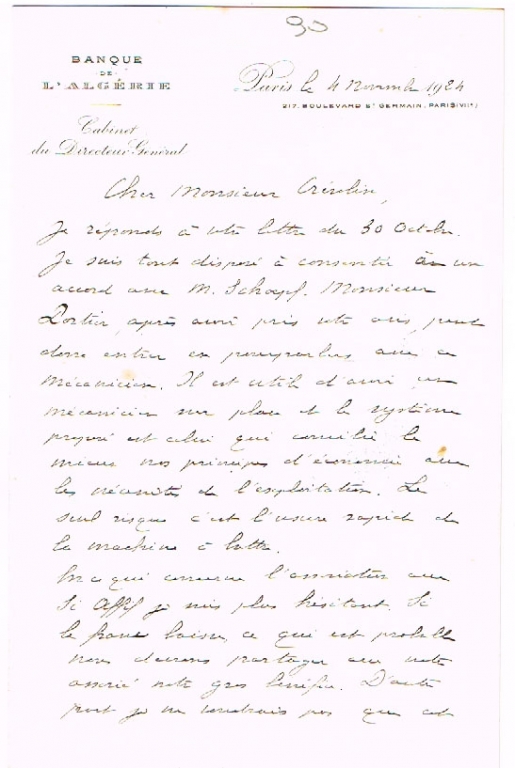 90
BANQUE
DE
L'ALGÉRIE
Cabinet
du Directeur Général
Paris le 4 novembre 1924
217, BOULEVARD ST GERMAIN, PARIS (VIIe)
Cher Monsieur
Je réponds à votre lettre du 30 Octobre.
Je suis tout disposé à consentir à un
accord avec M. Schoepf. Monsieur
après avoir pris votre avis, peut
donc entrer en pourparlers avec ce
mécanicien. Il est utile d'avoir un
mécanicien sur place et le système
proposé est celui qui concilie le
mieux nos principes d'économie avec
les nécessités de l'exploitation. Le
seul risque c'est l'usure rapide de
la machine à
En ce qui concerne l'association avec
Si Affif je suis plus hésitant. Si
le franc baisse, ce qui est probable
nous devrons partager avec notre
associé notre gros bénéfice. D'autre
part je ne voudrais pas que cet